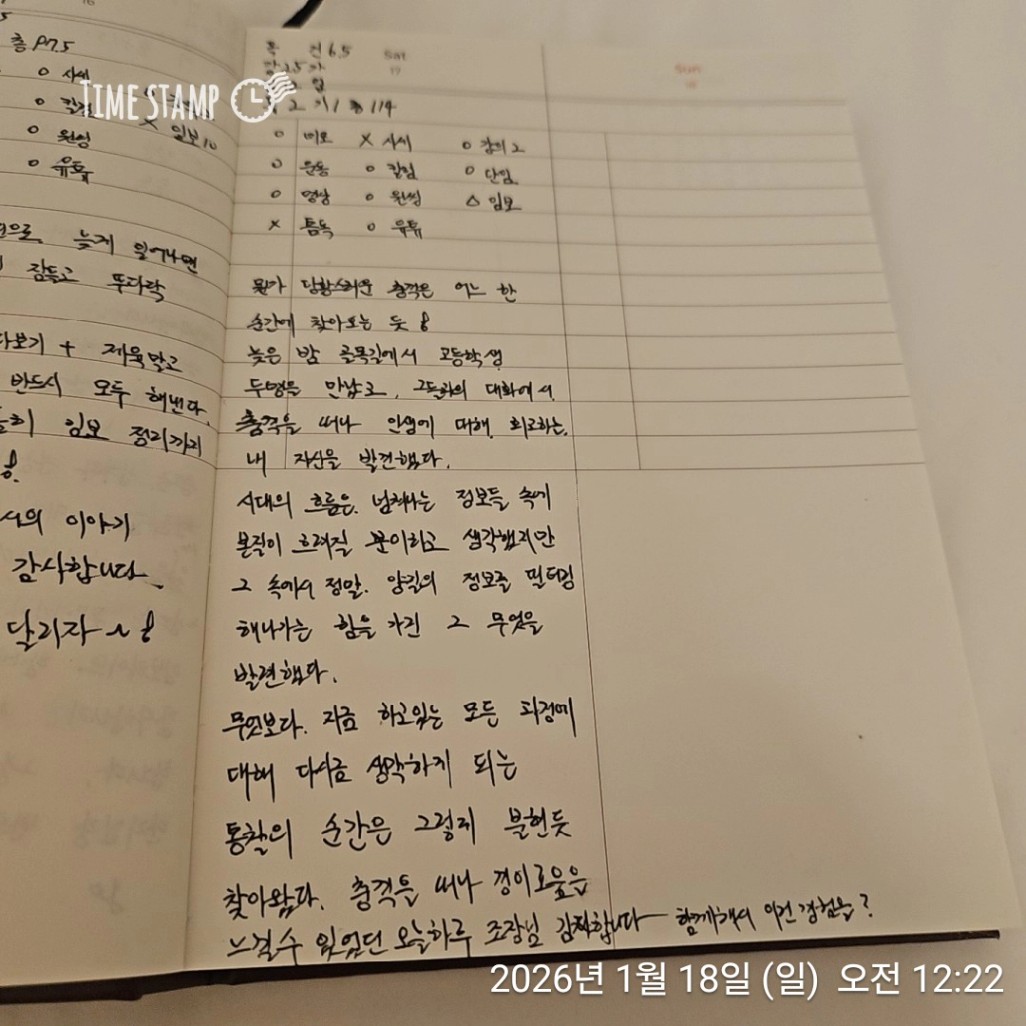 총 P75
o 사씨
o 칼럼
o 원씽
o 유튜
x 일보10
늦게 일어나면
잠들고 뚜다락
다보기 + 제육맡고
반드시 모두 해낸다.
임보 정리까지
서의 이야기
감사합니다.
달리자~!
6.5 Sat
17
sun
18
o 미모 x 사씨 o 강의2
o 운동 o 칼럼 o 단임
o 영상 o 원씽 △ 임보
x 톰독 o 유튜
뭔가 당황스러운 충격은 어느 한
순간에 찾아오는 듯!
늦은 밤 골목길에서 고등학생
두명을 만났고, 그들과의 대화에서
충격을 떠나 인생에 대해 회고하는
내 자신을 발견했다.
시대의 흐름은 넘쳐나는 정보들 속에
본질이 흐려질 뿐이라고 생각했지만
그 속에서 정말 양질의 정보를 필터링
해나가는 힘을 가진 그 무엇을
발견했다.
무엇보다 지금 하고있는 모든 과정에
대해 다시금 생각하게 되는
통찰의 순간은 그렇게 불현듯
찾아왔다. 충격을 떠나 경이로움을
느낄수 있었던 오늘하루 조장님 감사합니다 함께해서 이런 경험을?
TIME STAMP
2026년 1월 18일 (일) 오전 12:22